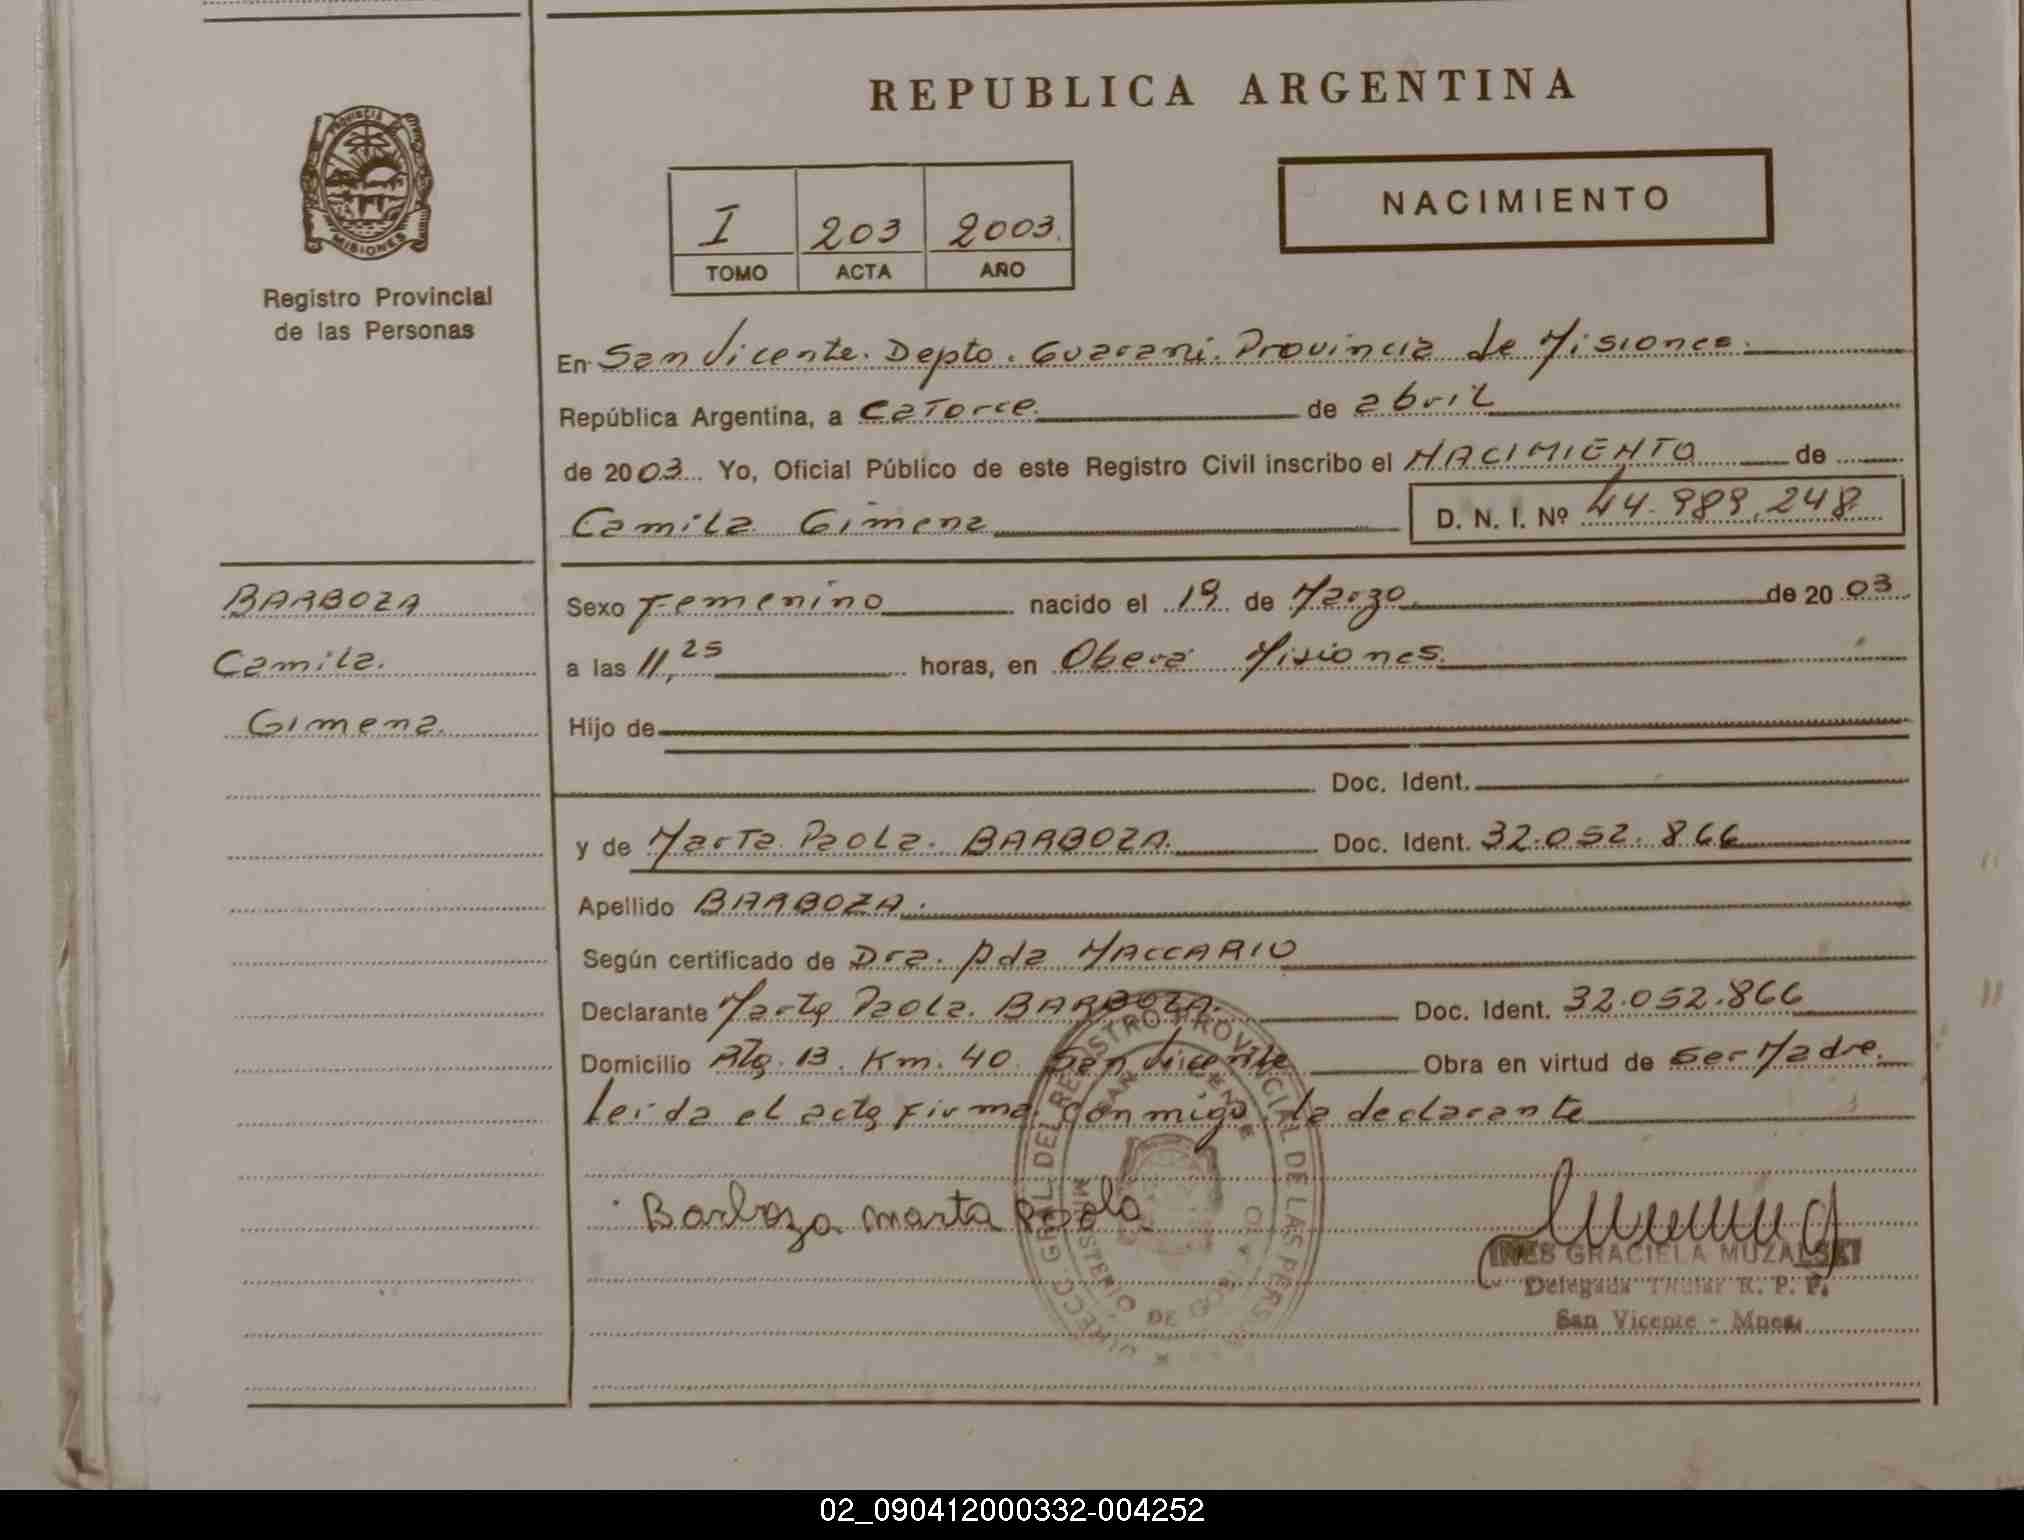 REPUBLICA ARGENTINA
PROVINCIA DE
MISIONES
Registro Provincial
de las Personas
NACIMIENTO
I 203 2003.
TOMO ACTA AÑO
En San Vicente. Depto. Guaraní. Provincia de Misiones.
República Argentina, a Catorce. de abril
de 2003 Yo, Oficial Público de este Registro Civil inscribo el NACIMIENTO de
Camila Gimena D. N. I. Nº 44.989.248
BARBOZA
Camila.
Gimena.
Sexo Femenino nacido el 19 de Marzo. de 20 03
a las 11,25 horas, en Oberá Misiones.
Hijo de
Doc. Ident.
y de Marta Paola. BARBOZA. Doc. Ident. 32.052.866
Apellido BARBOZA.
Según certificado de Dra. Ada MACCARIO
Declarante Marta Paola. BARBOZA. Doc. Ident. 32.052.866
Domicilio Rta. 13. Km. 40. San Vicente Obra en virtud de ser Madre.
leída el acta firma conmigo la declarante
Barboza marta Paola
REGISTRO PROVINCIAL DE LAS PERS
SAN VICENTE
MINISTERIO DE GOBIERNO
INES GRACIELA MUZALSKI
Delegada Titular R. P. P.
San Vicente - Mnes.
02_090412000332-004252